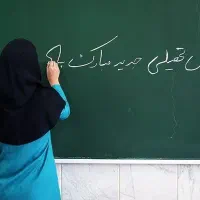 تحصیلی جدید مبارک